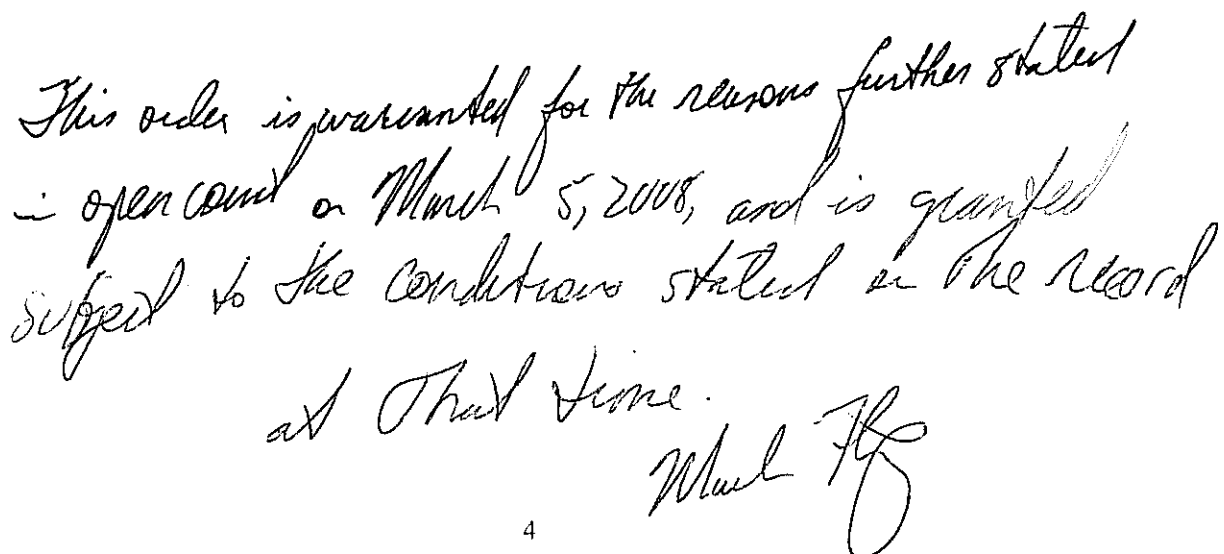 This order is warranted for the reasons further stated
in open court on March 5, 2008, and is granted
subject to the conditions stated on the record
at that time.
Mark
4